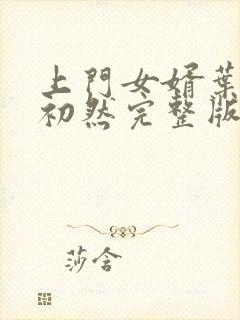 上門女婿葉
初然完整版
莎含